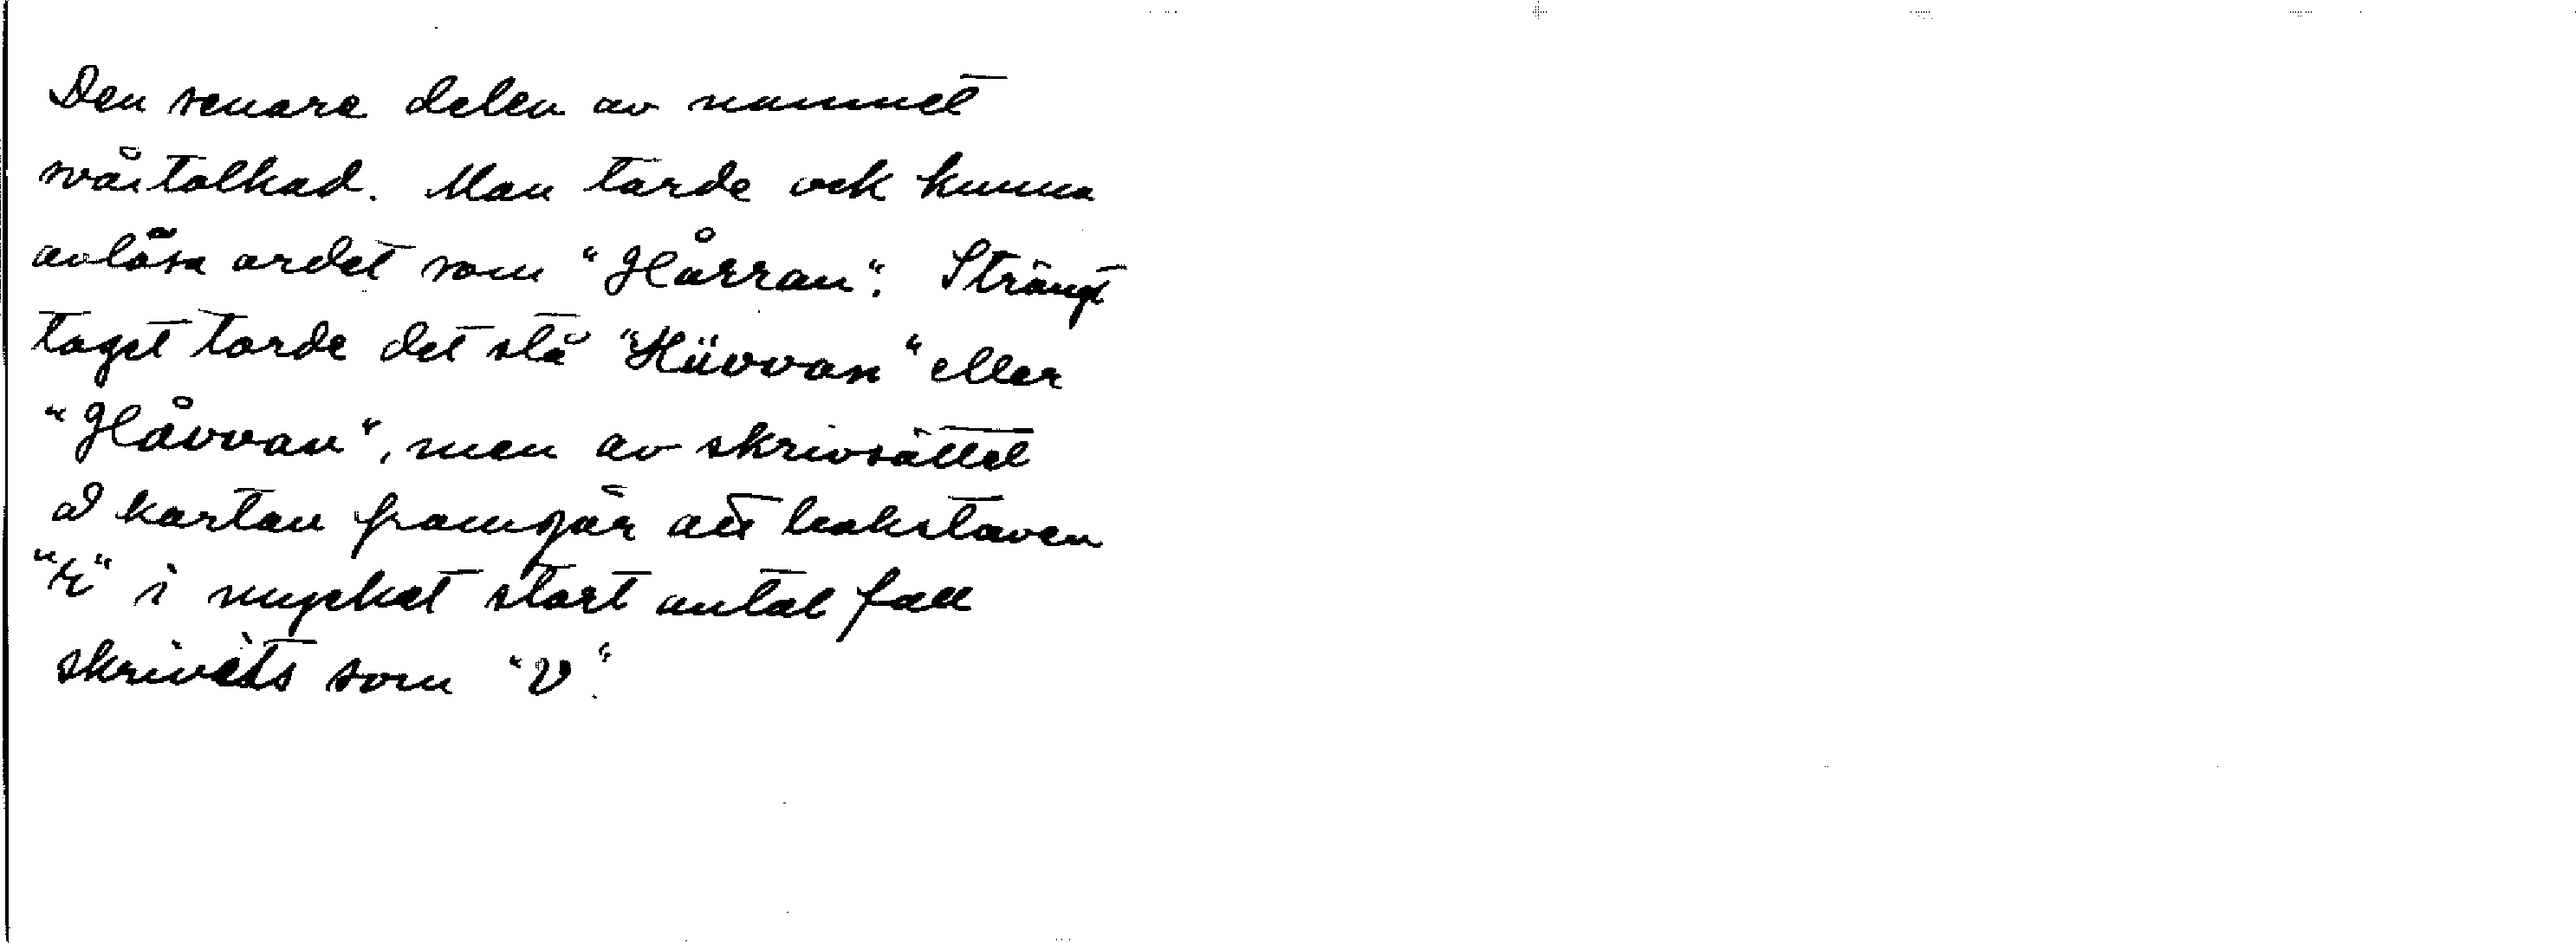 Den senare delen av namnet
svårtolkad. Man torde ock kunna
avläsa ordet som "Hårran". Strängt
taget torde det stå "Hüvvan" eller
"Håvvan", men av skrivsättet
å kartan framgår att bokstaven
"r" i mycket stort antal fall
skrivits som "v".